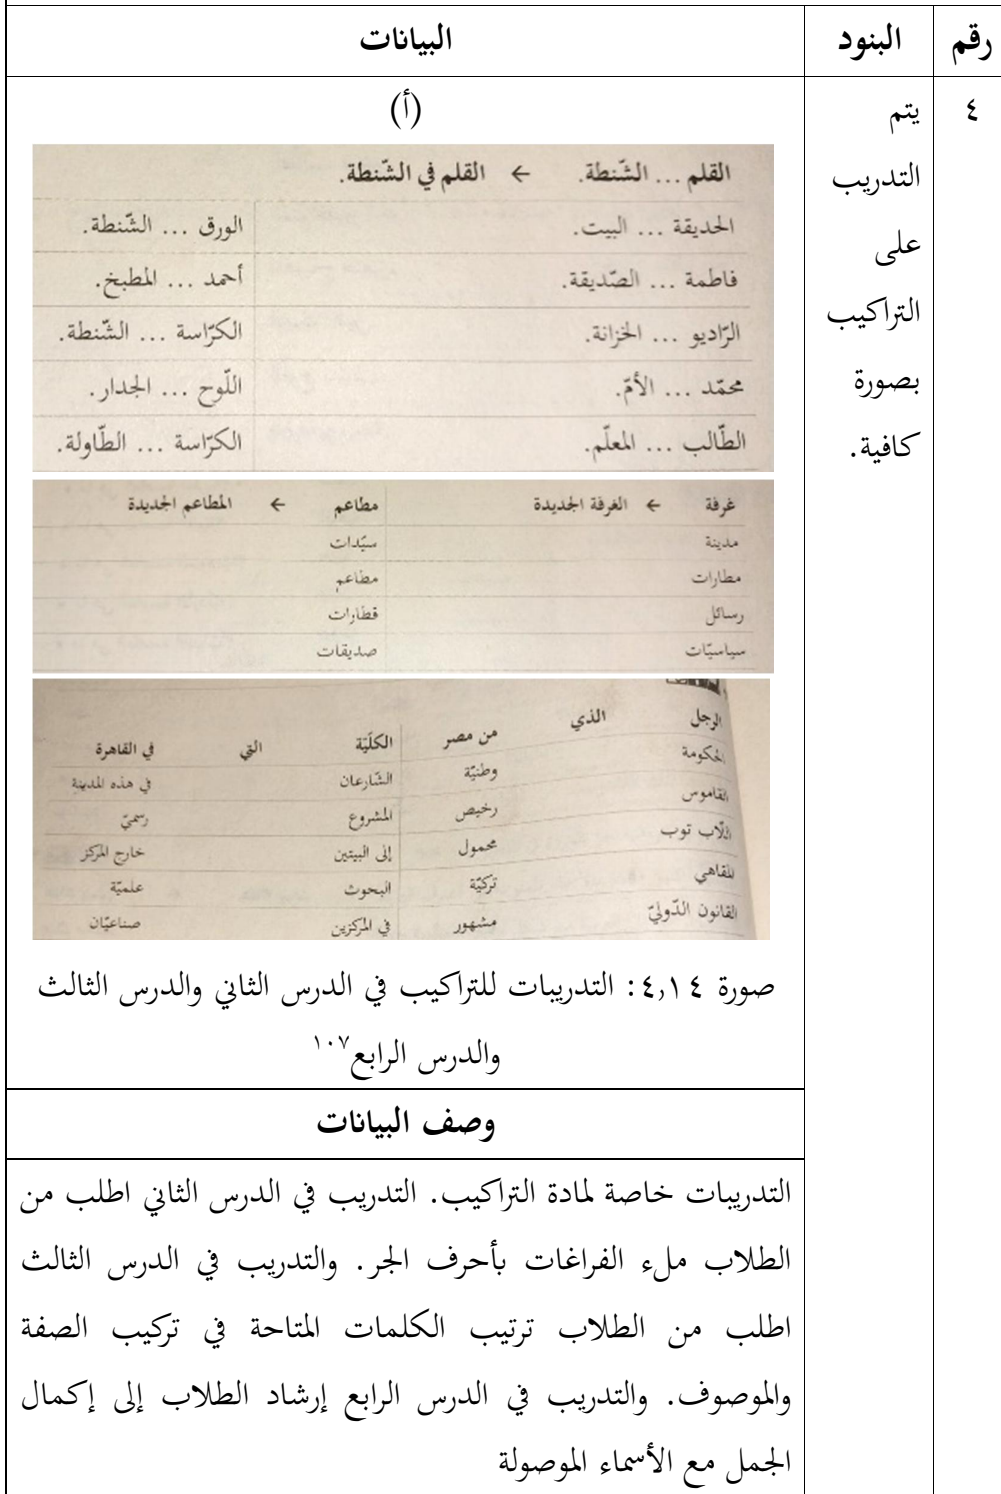 رقم البنود البيانات
٤ يتم التدريب على التراكيب بصورة كافية.
(أ)
القلم ... الشّنطة. ← القلم في الشّنطة.
الحديقة ... البيت. الورق ... الشّنطة.
فاطمة ... الصّديقة. أحمد ... المطبخ.
الرّاديو ... الخزانة. الكرّاسة ... الشّنطة.
محمّد ... الأمّ. اللّوح ... الجدار.
الطّالب ... المعلّم. الكرّاسة ... الطّاولة.
غرفة ← الغرفة الجديدة مطاعم ← المطاعم الجديدة
مدينة سيّدات
مطارات مطاعم
رسائل قطارات
سياسيّات صديقات
الرجل الذي من مصر الكلّيّة التي في القاهرة
الحكومة وطنيّة الشّارعان في هذه المدينة
القاموس رخيص المشروع رسميّ
اللّاب توب محمول إلى البيتين خارج المركز
المقاهي تركيّة البحوث علميّة
القانون الدّوليّ مشهور في المركزين صناعيّان
صورة ٤,١٤: التدريبات للتراكيب في الدرس الثاني والدرس الثالث
والدرس الرابع١٠٧
وصف البيانات
التدريبات خاصة لمادة التراكيب. التدريب في الدرس الثاني اطلب من
الطلاب ملء الفراغات بأحرف الجر. والتدريب في الدرس الثالث
اطلب من الطلاب ترتيب الكلمات المتاحة في تركيب الصفة
والموصوف. والتدريب في الدرس الرابع إرشاد الطلاب إلى إكمال
الجمل مع الأسماء الموصولة